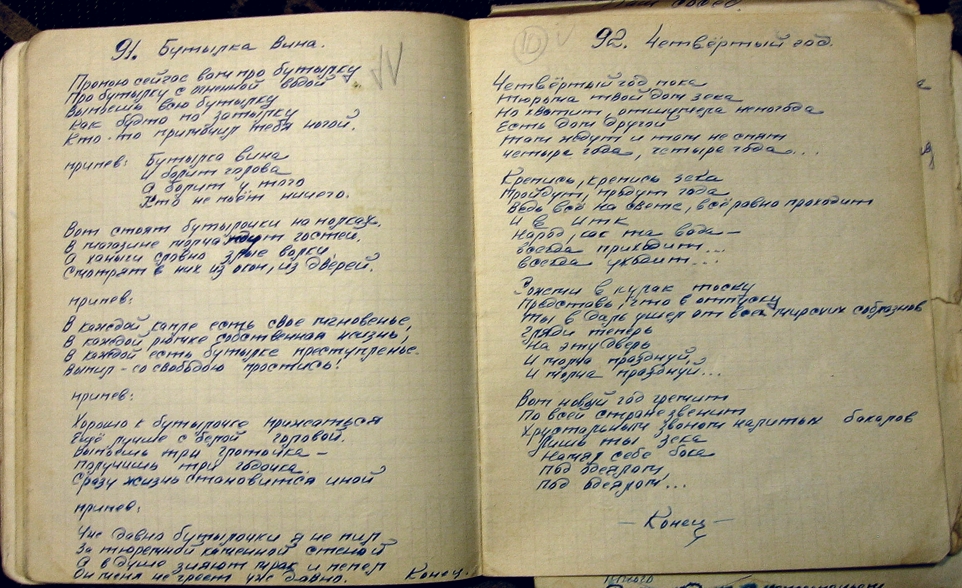 91. Бутылка Вина.
Пропою сейчас вам про бутылку
Про бутылку с огненной водой
Выпьешь всю бутылку
Как будто по затылку
Кто-то пригвоздил тебя ногой.
припев: Бутылка вина
И болит голова
А болит у того
Кто не пьёт ничего.
Вот стоят бутылочки на полках.
В магазине молча ждут гостей.
А ханыги словно злые волки
Смотрят в них из окон, из дверей.
припев:
В каждой капле есть свое мгновенье,
В каждой рюмке собственная жизнь,
В каждой есть бутылке преступленье.
Выпил - со свободою простись!
припев:
Хорошо к бутылочке прижаться
Ещё лучше с белой головой.
Выпьешь три глоточка -
получишь три годочка
Сразу жизнь становится иной
припев:
Уже давно бутылочки я не пил
За тюремной каменной стеной
А в душе зияют мрак и пепел
Он меня не греет уже давно. Конец.
10
92. Четвёртый год.
Четвёртый год пока
Тюрьма твой дом зека
Но хватит, отшумела непогода
Есть дом другой
Там ждут и там не спят
четыре года, четыре года...
Крепись, крепись зека
Пройдут, пройдут года
Ведь всё на свете, всё равно проходит
И в итк
Народ, как та вода -
всегда приходит...
всегда уходит...
Зажми в кулак тоску
Представь, что в отпуску
Ты в даль ушел от всех мирских соблазнов
Гляди теперь
На эту дверь
И молча празднуй
И молча празднуй...
Вот новый год гремит
По всей стране звенит
Хрустальным звоном налитых бокалов
Лишь ты зека
Намял себе бока
под одеялом,
под одеялом...
- Конец -